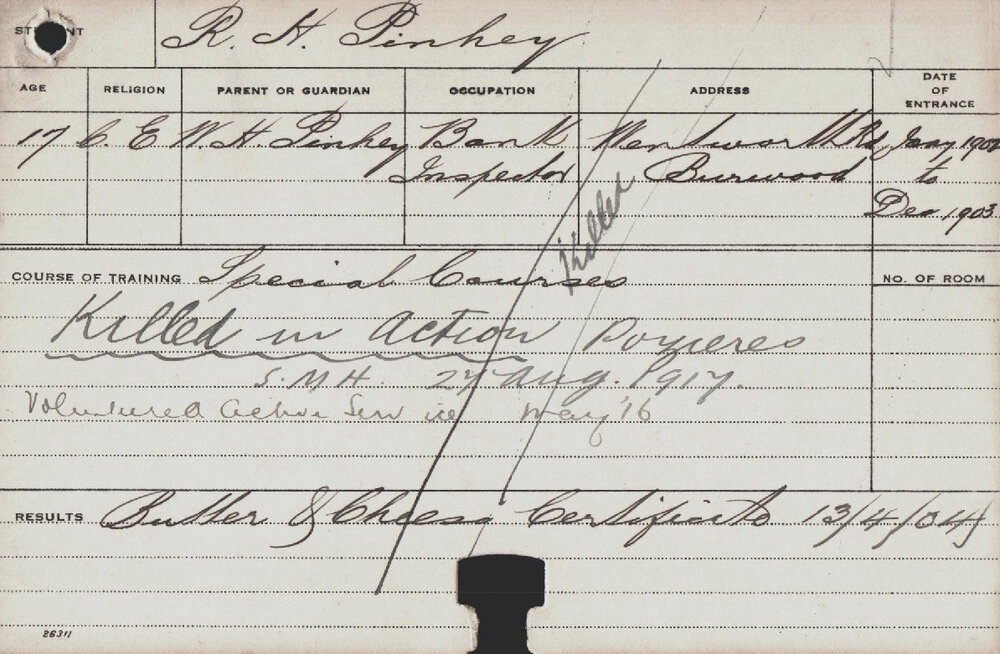 STUDENT R. H. Pinhey
AGE RELIGION PARENT OR GUARDIAN OCCUPATION ADDRESS DATE OF ENTRANCE
17 C. E W. H. Pinhey Bank Wentworth Rd Jany 1902
Inspector Burwood to
Dec 1903
Killed
COURSE OF TRAINING Special Courses
NO. OF ROOM
Killed in Action Pozieres
S.M.H. 24 Aug. 1917.
Voluntured Active Service May '16
RESULTS Butter & Cheese Certificate 13/4/04
26311